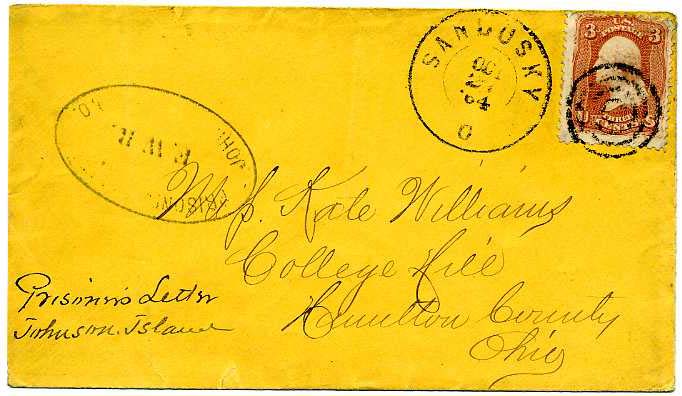 SANDUSKY
OCT
O
3 U.S. 3
POSTAGE
THREE
CENTS
JOHN
PRISON
Kate Williams
College Hill
Hamilton County
Ohio
Prisoner's Letter
Johnson Island